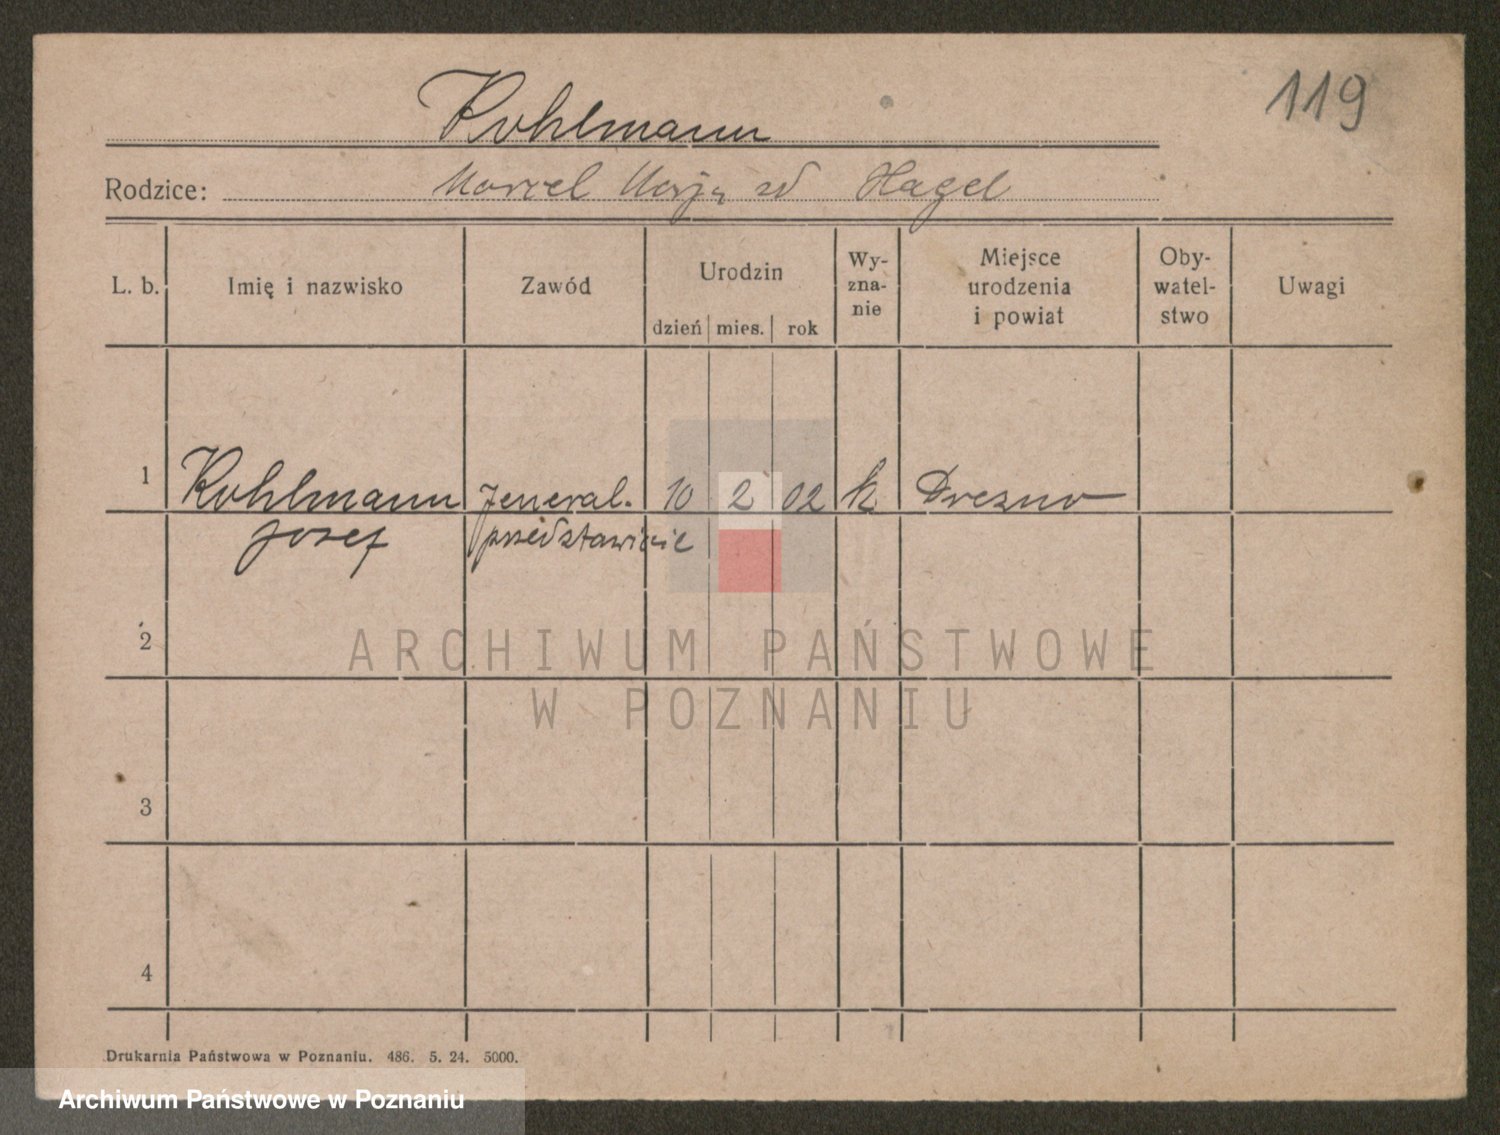 119
Kohlmann
Rodzice: Marcel Marja zd Hagel
L. b.
Imię i nazwisko
Zawód
Urodzin
dzień mies. rok
Wy-
zna-
nie
Miejsce
urodzenia
i powiat
Oby-
watel-
stwo
Uwagi
1 Kohlmann jeneral. 10 2 02 k Drezno
Josef przedstawiciel
2
3
4
ARCHIWUM PAŃSTWOWE
W POZNANIU
Drukarnia Państwowa w Poznaniu. 486. 5. 24. 5000.
Archiwum Państwowe w Poznaniu